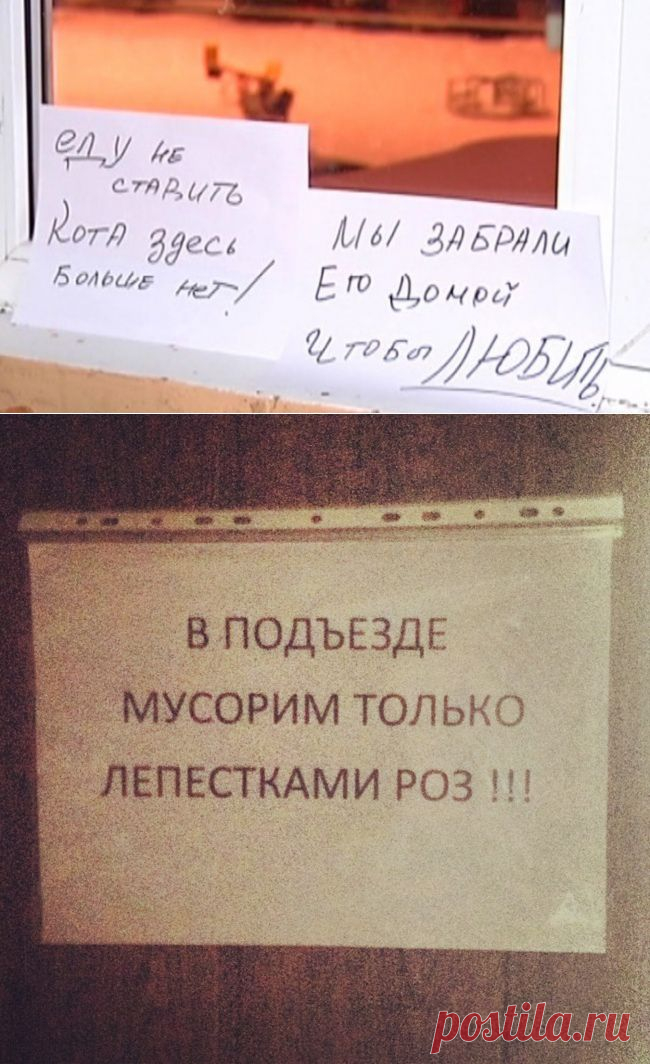 еду не
ставить
Кота здесь
больше нет!
Мы забрали
Его домой
чтобы ЛЮБИТЬ
В ПОДЪЕЗДЕ
МУСОРИМ ТОЛЬКО
ЛЕПЕСТКАМИ РОЗ !!!
postila.ru